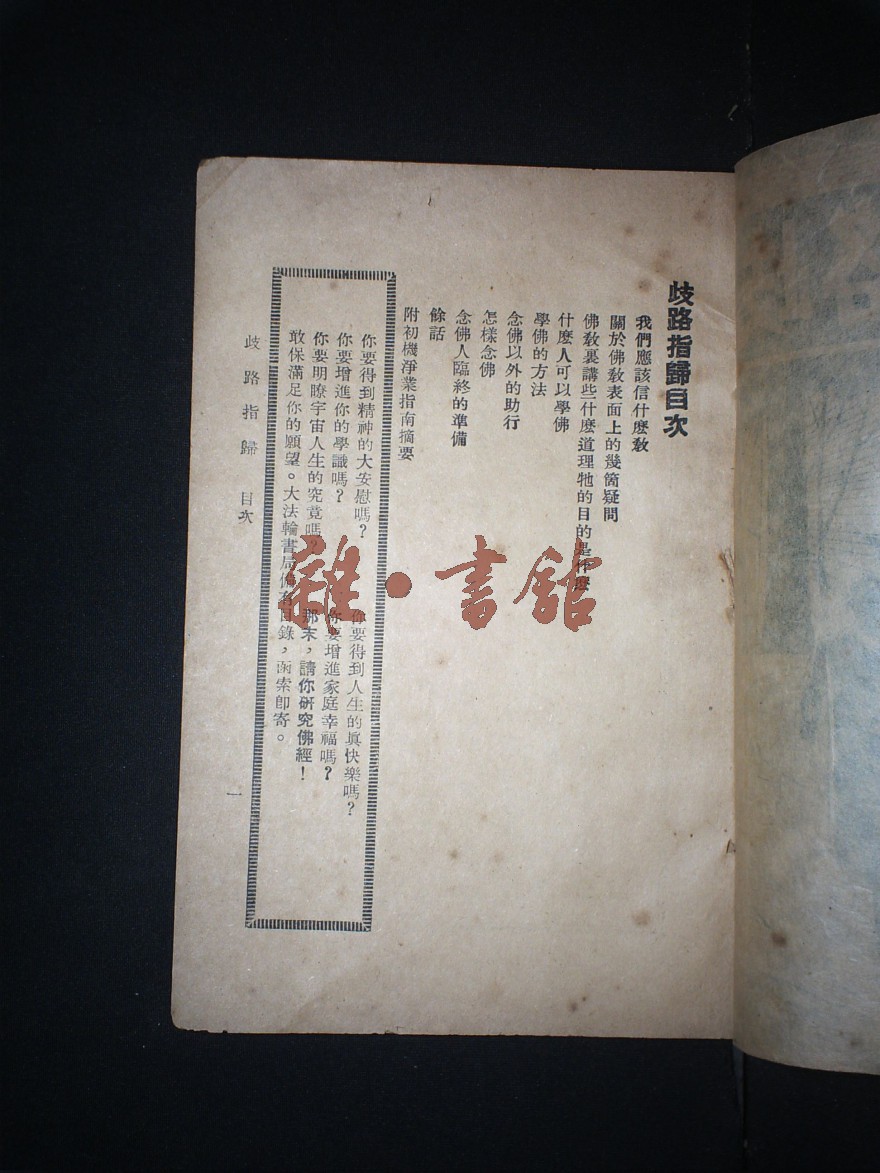 歧路指歸目次
我們應該信什麽敎
關於佛敎表面上的幾箇疑問
佛敎裏講些什麽道理牠的目的是什麽
什麽人可以學佛
學佛的方法
念佛以外的助行
怎樣念佛
念佛人臨終的準備
餘話
附初機淨業指南摘要
你要得到精神的大安慰嗎？　你要得到人生的眞快樂嗎？
你要增進你的學識嗎？　你要增進家庭幸福嗎？
你要明瞭宇宙人生的究竟嗎？　那末，請你硏究佛經！
敢保滿足你的願望。大法輪書局備有目錄，函索卽寄。
歧路指歸　目次
一
雜・書館